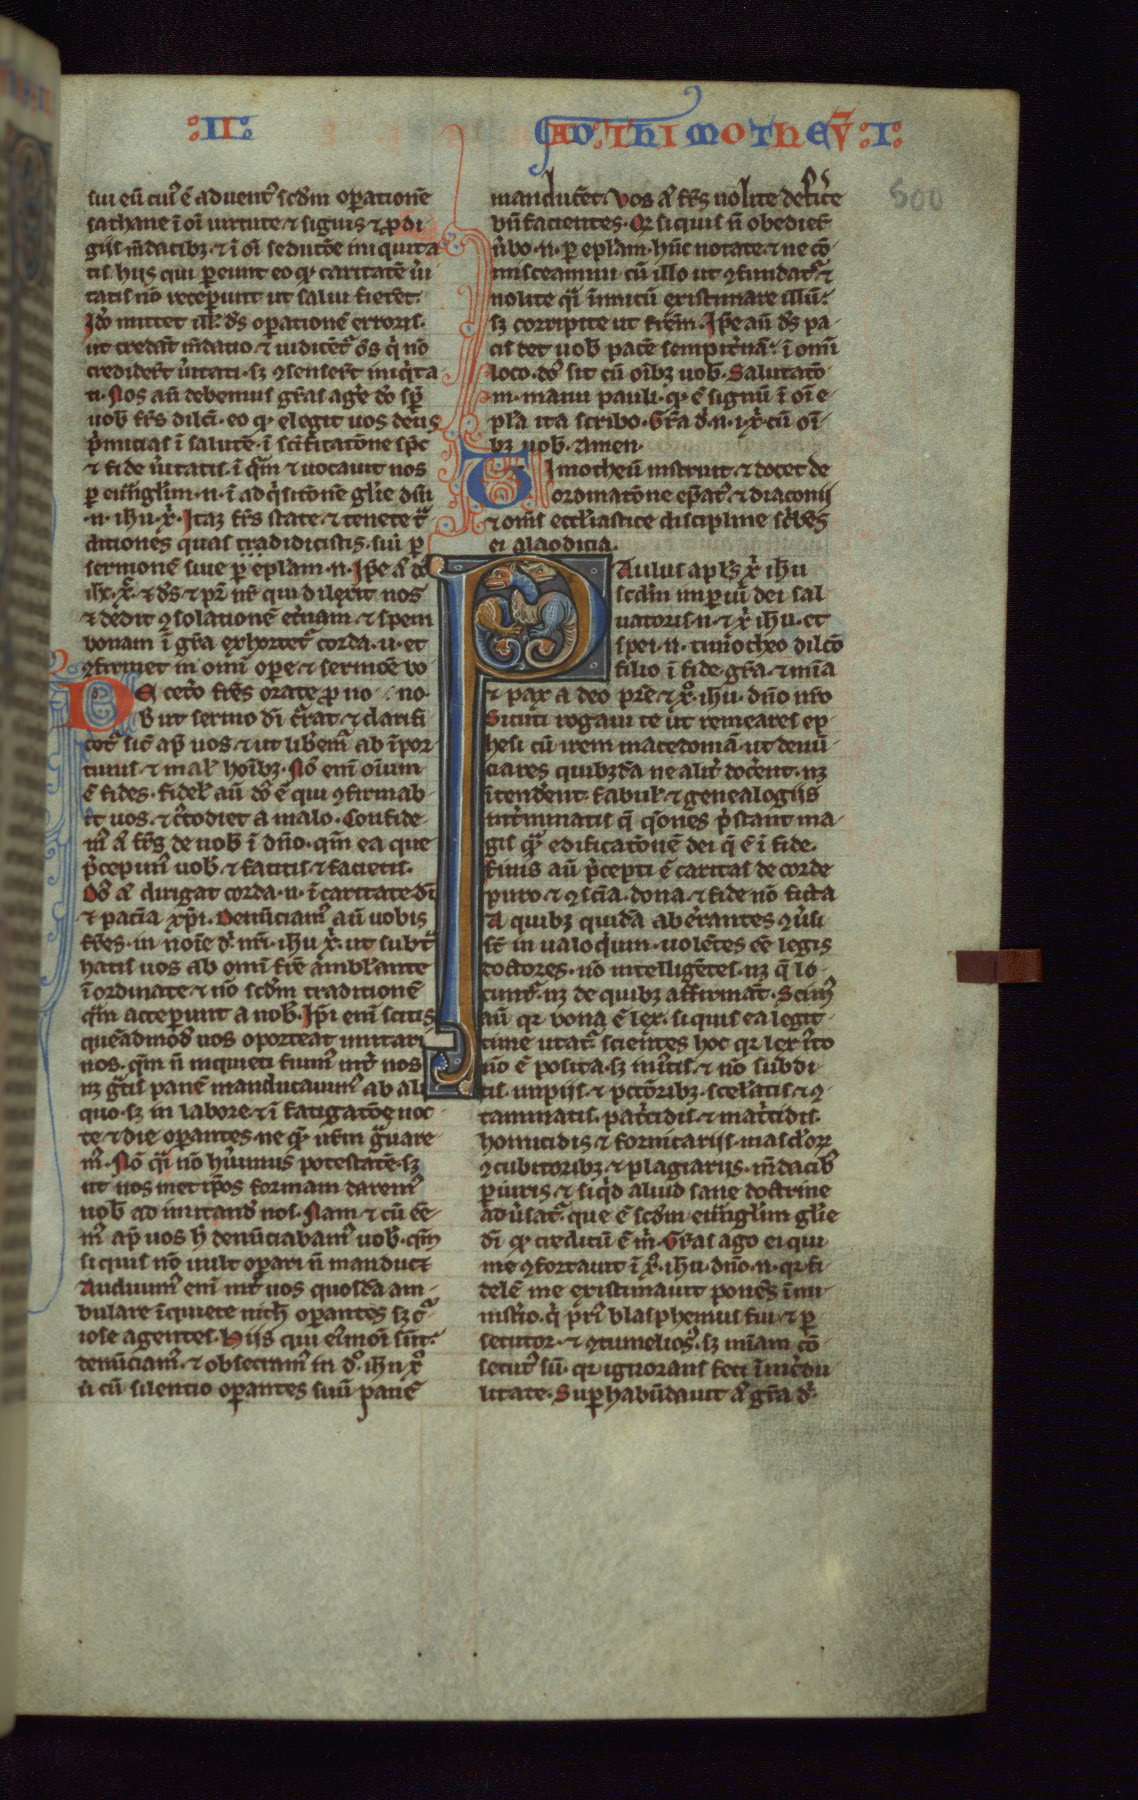 :II:
AD: THIMOTHEV̄ :I:
500
sui eū cuiꝰ ē aduentꝰ scd̄m oꝑationē
sathane ī oī uirtute ⁊ signis ⁊ ꝓdi
giis m̄dacibꝫ ⁊ ī oī seductōe iniquita
tis hiis qui ꝑeunt eo ꝙ caritatē ūi
tatis nō receꝑunt ut salui fierēt.
Iđo mittet ill̓. ds̄ oꝑationē erroris.
ut credāt m̄datio ⁊ iudicēt̉ oēs q̇ nō
credider̄t ūitati. sꝫ ꝯsenser̄t iniq̇ta
ti. Nos aū debemus gr̄as ag̓e dō sꝑ
uob̄ fr̄s dilc̄i. eo ꝙ elegit uos deus
p̓micias ī salutē. ī scīficatōne spc̄
⁊ fide ūitatis. ī qm̄ ⁊ uocauit nos
ꝑ euāgliūm. n. ī adq̇sitōnē gl̄ie dn̄i
.n. ihu. x̄. Itaꝫ fr̄s state ⁊ tenete t̉ͣ
ditiones quas tradidicistis. siū ꝑ
sermonē siue ꝑ eplam. n. Ip̄e ā dō
ihc̄. x̄. ⁊ ds̄ ⁊ pr̄ nr̄ qui dilexit nos
⁊ dedit ꝯsolationē et̓nam. ⁊ spem
bonam ī gr̄a exhortet̉ corda. u. et
ꝯfirmet in omī oꝑe ⁊ sermōe bo
De cet̓o fr̄es orate ꝓ no no.
b̄ ut sermo dī c̓rat ⁊ clarifi
cet̉ sic̄ ap̄ uos. ⁊ ut lib̓em̉ ab īpor
tunis ⁊ mal̓ hoībꝫ. Nō enī oīum
ē fides. fidel̓ aū dō ē qui ꝯfirmab
it uos. ⁊ c̓todiet a malo. Confide
m̉ ā fr̄s de uob̄ ī dn̄o. qm̄ ea que
p̓cepim̉ uob̄ ⁊ facitis ⁊ facietis.
Dō ā dirigat corda. u. ī caritate dī
⁊ pacīa xp̄i. Denūciam̉ aū uobis
fr̄es. in noīe d̓. nr̄i. ihu x̄. ut subt̉ͣ
hatis uos ab omī fr̄e āmblante
īordinate ⁊ nō scd̄m traditionē
qm̄ acceꝑunt a nob̄. Ip̄i enī scitis
quēadmodū uos oporteat imitari
nos. qm̄ n̄ inquieti fuim̉ int̓ nos
nꝫ gͣtis panē manducauim̉ ab ali
quo. sꝫ in labore ⁊ ī fatigatōe noc
te ⁊ die oꝑantes. ne qͣ̄ ur̄m gͣuare
m̉. Nō qͣi nō hūimus potestatē. sꝫ
ut nos met ip̄os formam darem̉
uob̄ ad imitand̄ nos. Nam ⁊ cū ēe
m̉ ap̄ uos h̄ denūciabam̉ uob̄. qm̄
si quis nō uult oꝑari n̄ manducꝫ
Audiuim̉ enī int̓ uos quosdā am
bulare īquiete nich̄ oꝑantes sꝫ c̉ͣ
iose agentes. Hiis qui ei̓moī sūt.
denūciam̉. ⁊ obsecram̉ in d̓. ihu x̄
si cū silentio oꝑantes suū panē
manducēt. Vos ā fr̄s nolite defic̓e
bn̄facientes. Qr si quis n̄ obedier̄
ūbo. n. ꝑ eplam. hūc notate. ⁊ ne cō
misceamini cū illo ut ꝯfundat̉. ⁊
nolite qͣi inimicū existimare illū.
sꝫ corripite ut fr̄em. Ip̄e aū ds̄ pa
cis det uob̄ pacē sempit̓nā. ī omī
loco. dō sit cū oībꝫ uob̄. Salutatō
m. manu pauli. q̇ ē signū ī oī e
pla ita scribo. Gr̄a d̓. n. i. x̄. cū oī
bꝫ uob̄. Amen.
Timotheū instruit ⁊ docet de
ordinatōne ep̄at̉ ⁊ diaconii
⁊ omīs eccl̄iastice discipline sc̓bēs
ei alaodicia.
Paulus apl̄s x̄ ihu
scd̄m imperiū dei sal
uatoris. n. ⁊ x̄ ihu. et
spei. n. timotheo dilc̄o
filio ī fide. gr̄a. ⁊ mīa
⁊ pax a deo pr̄e. ⁊ x̄. ihu. dn̄o nr̄o
Sicuti rogaui te ut remeares ep
hesi cū irem macedoniā ut denū
ciares quibꝫdā ne alit̓ docerent. nꝫ
ītend̓ent. fabul̓ ⁊ genealogiis
int̓minatis q̄ q̄ones p̄stant ma
gis qͣ̄ edificatōnē dei q̄ ē ī fide.
finis aū p̄cepti ē caritas de corde
puro. ⁊ ꝯscīa. bona. ⁊ fide nō ficta
A quibꝫ quidā aberrantes ꝯūsi
st̄ in ualoq̇um. uolētes ēe legis
doctores. nō intelligētes. nꝫ q̄ lo
cunt̉. nꝫ de quibꝫ affirmāt. Scim̉
aū qr bona ē lex. si quis ea legit
time utat̉. scientes hoc qr lex iv̄to
nō ē posita. sꝫ iniustis. ⁊ nō subdi
tis. impiis. ⁊ pctōribꝫ. scel̓atis. ⁊ ꝯ
taminatis. patricidis. ⁊ matricidis.
homicidis ⁊ fornicariis. masclor̄
ꝯcubitoribꝫ. ⁊ plagiariis. m̄dacib̄
ꝑiuris. ⁊ siq̇d aliud sane doctrine
adūsat̉. que ē scd̄m euāgliūm gl̄ie
dī ꝙ creditū ē m̄. Gr̄as ago ei qui
me ꝯfortauit ī x̄. ihu. dn̄o. n. qr. fi
delē me existimauit ponēs ī mi
nist̓io. q̇ pri̓ blasphemus fui. ⁊ ꝑ
secutor. ⁊ ꝯtumelios̉. sꝫ mīam cō
secut̉ sū. qr ignorans feci ī incredu
litate. Suꝑhabūdauit ā gr̄a d̓.